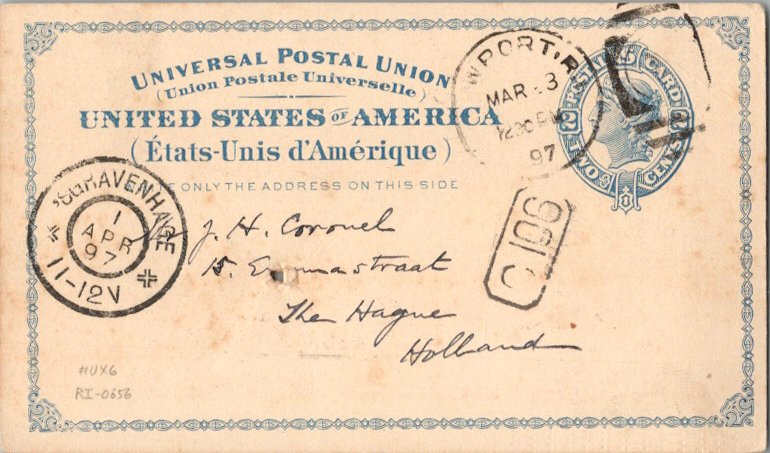 UNIVERSAL POSTAL UNION
(Union Postale Universelle)
UNITED STATES OF AMERICA
(États-Unis d'Amérique)
E ONLY THE ADDRESS ON THIS SIDE
WPORT, R.
MAR 3
1230 PM
97
POSTAL CARD
2 2
TWO CENTS
'SGRAVENHAGE
1
APR
97
11-12V
J. H. Coronel
15. Emmastraat
The Hague
Holland
C 196
#UX6
RI-0656